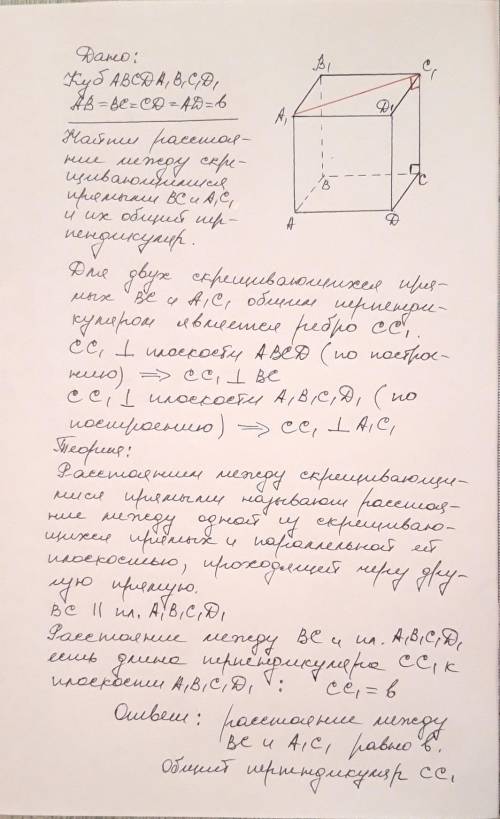 Дано:
Куб ABCDA₁B₁C₁D₁
AB=BC=CD=AD=в
Найти расстоя-
ние между скре-
щивающимися
прямыми BC и A₁C₁
и их общий пер-
пендикуляр.
B₁
C₁
A₁
D₁
B
C
A
D
Для двух скрещивающихся пря-
мых BC и A₁C₁ общим перпенди-
куляром является ребро CC₁.
CC₁ ⊥ плоскости ABCD (по построе-
нию) ⟹ CC₁ ⊥ BC
CC₁ ⊥ плоскости A₁B₁C₁D₁ (по
построению) ⟹ CC₁ ⊥ A₁C₁
Теория:
Расстоянием между скрещивающи-
мися прямыми называют расстоя-
ние между одной из скрещиваю-
щихся прямых и параллельной ей
плоскостью, проходящей через дру-
гую прямую.
BC || пл. A₁B₁C₁D₁
Расстояние между BC и пл. A₁B₁C₁D₁
есть длина перпендикуляра CC₁ к
плоскости A₁B₁C₁D₁ : CC₁ = в
Ответ: расстояние между
BC и A₁C₁ равно в.
Общий перпендикуляр CC₁